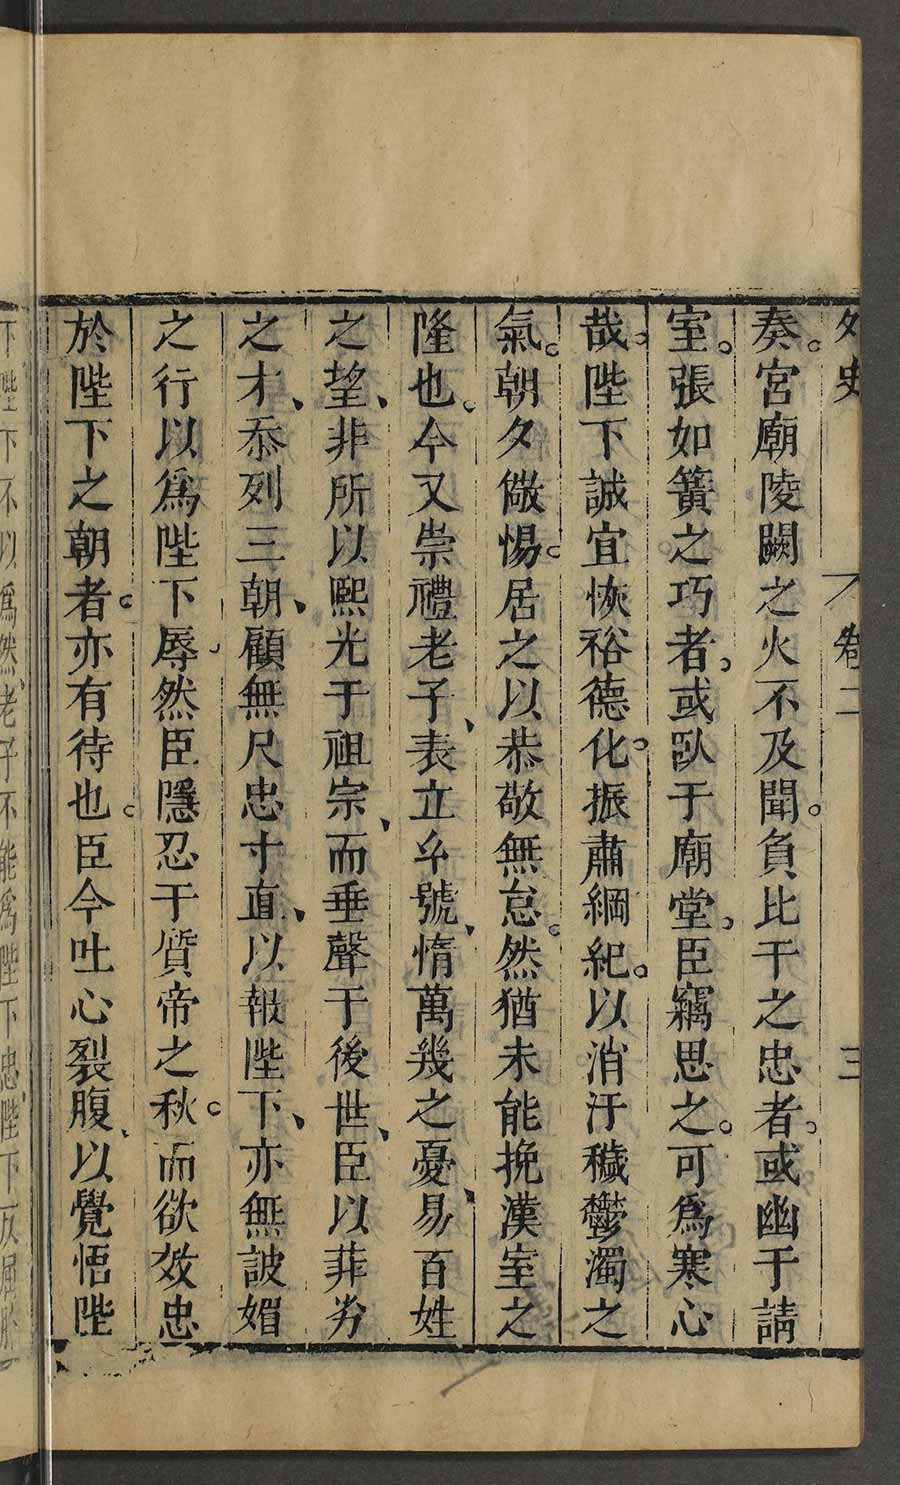 外史 卷二 三
奏。宮廟陵闕之火不及聞。負比干之忠者。或幽于請
室。張如簧之巧者。或臥于廟堂。臣竊思之。可爲寒心
哉。陛下誠宜恢裕德化。振肅綱紀。以消汙穢鬱濁之
氣。朝夕儆惕。居之以恭敬無怠。然猶未能挽漢室之
隆也。今又崇禮老子、表立厹號、惰萬幾之憂、易百姓
之望、非所以熙光于祖宗、而垂聲于後世、臣以菲劣
之才、忝列三朝、顧無尺忠寸直、以報陛下、亦無詖媚
之行以爲陛下辱。然臣隱忍于質帝之秋。而欲效忠
於陛下之朝者。亦有待也。臣今吐心裂腹、以覺悟陛
下陛下不以爲然、老子不能爲陛下忠、陛下反屈於